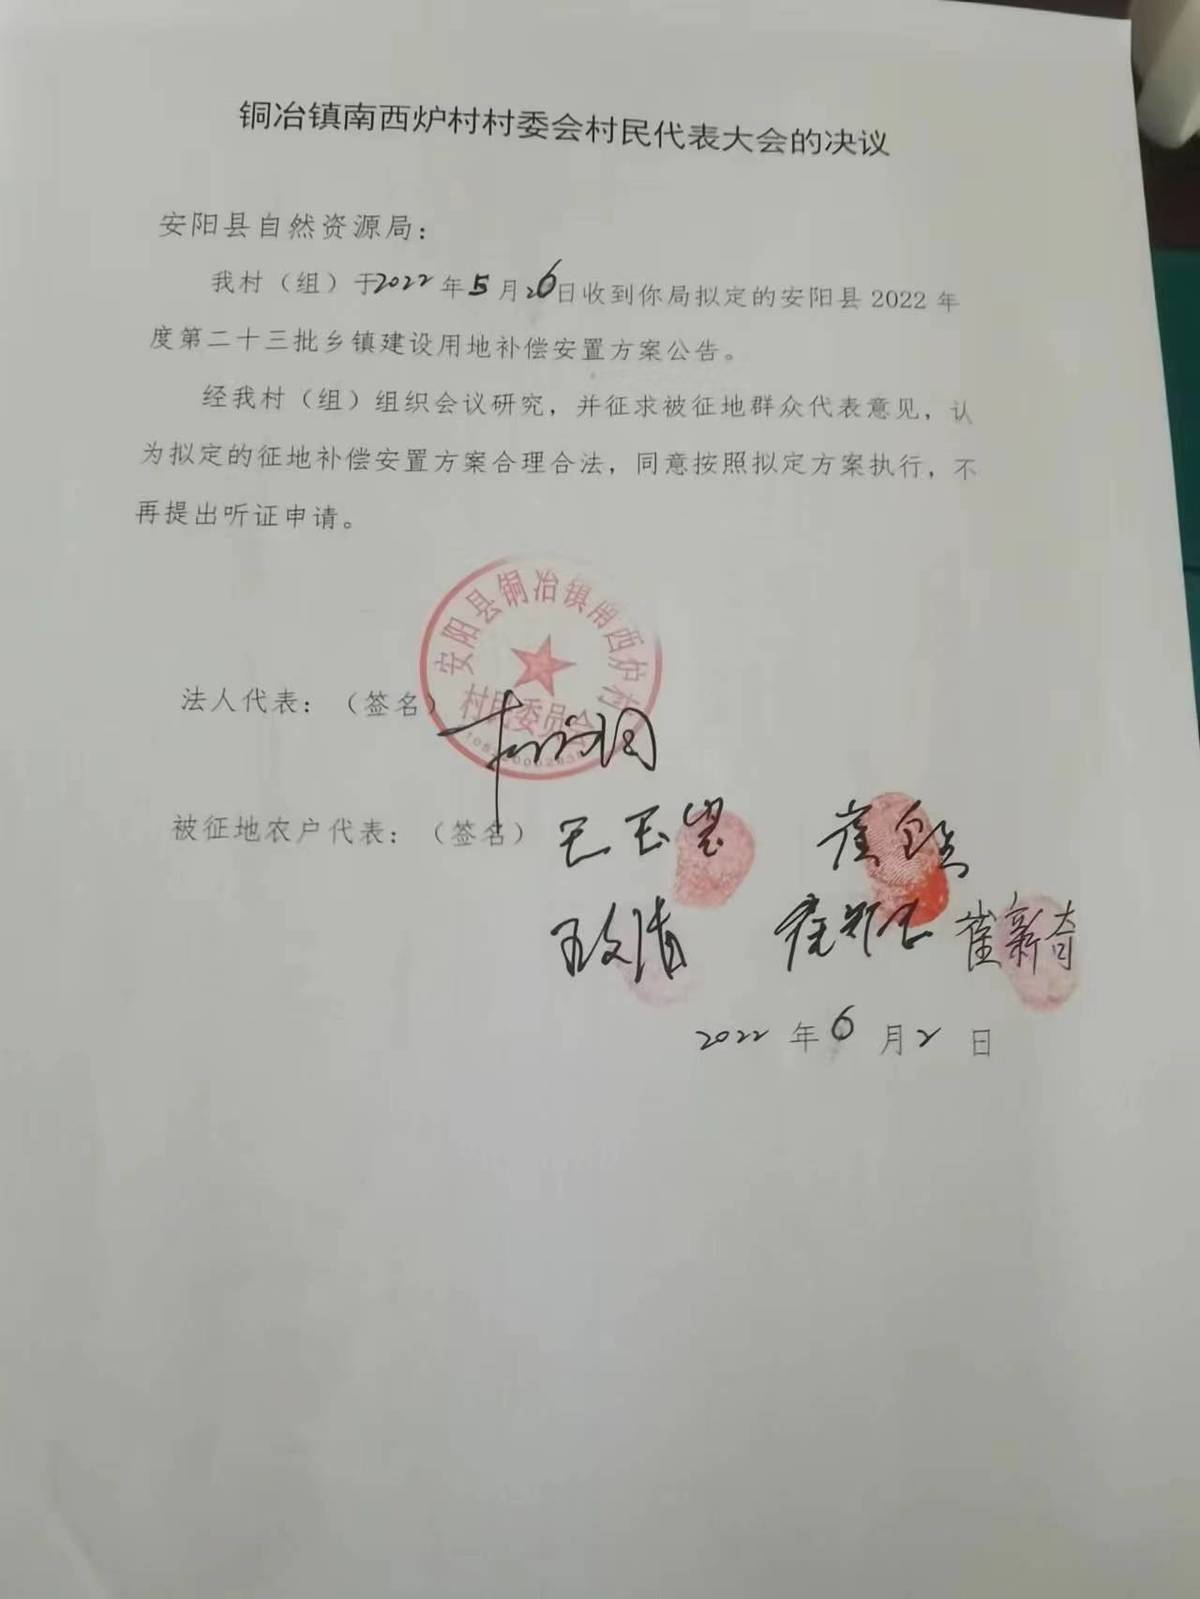 铜冶镇南西炉村村委会村民代表大会的决议
安阳县自然资源局：
我村（组）于2022年5月26日收到你局拟定的安阳县2022年
度第二十三批乡镇建设用地补偿安置方案公告。
经我村（组）组织会议研究，并征求被征地群众代表意见，认
为拟定的征地补偿安置方案合理合法，同意按照拟定方案执行，不
再提出听证申请。
安阳县铜冶镇南西炉村
村民委员会
法人代表：（签名）
被征地农户代表：（签名）
王文清 崔新奇
2022年6月2日